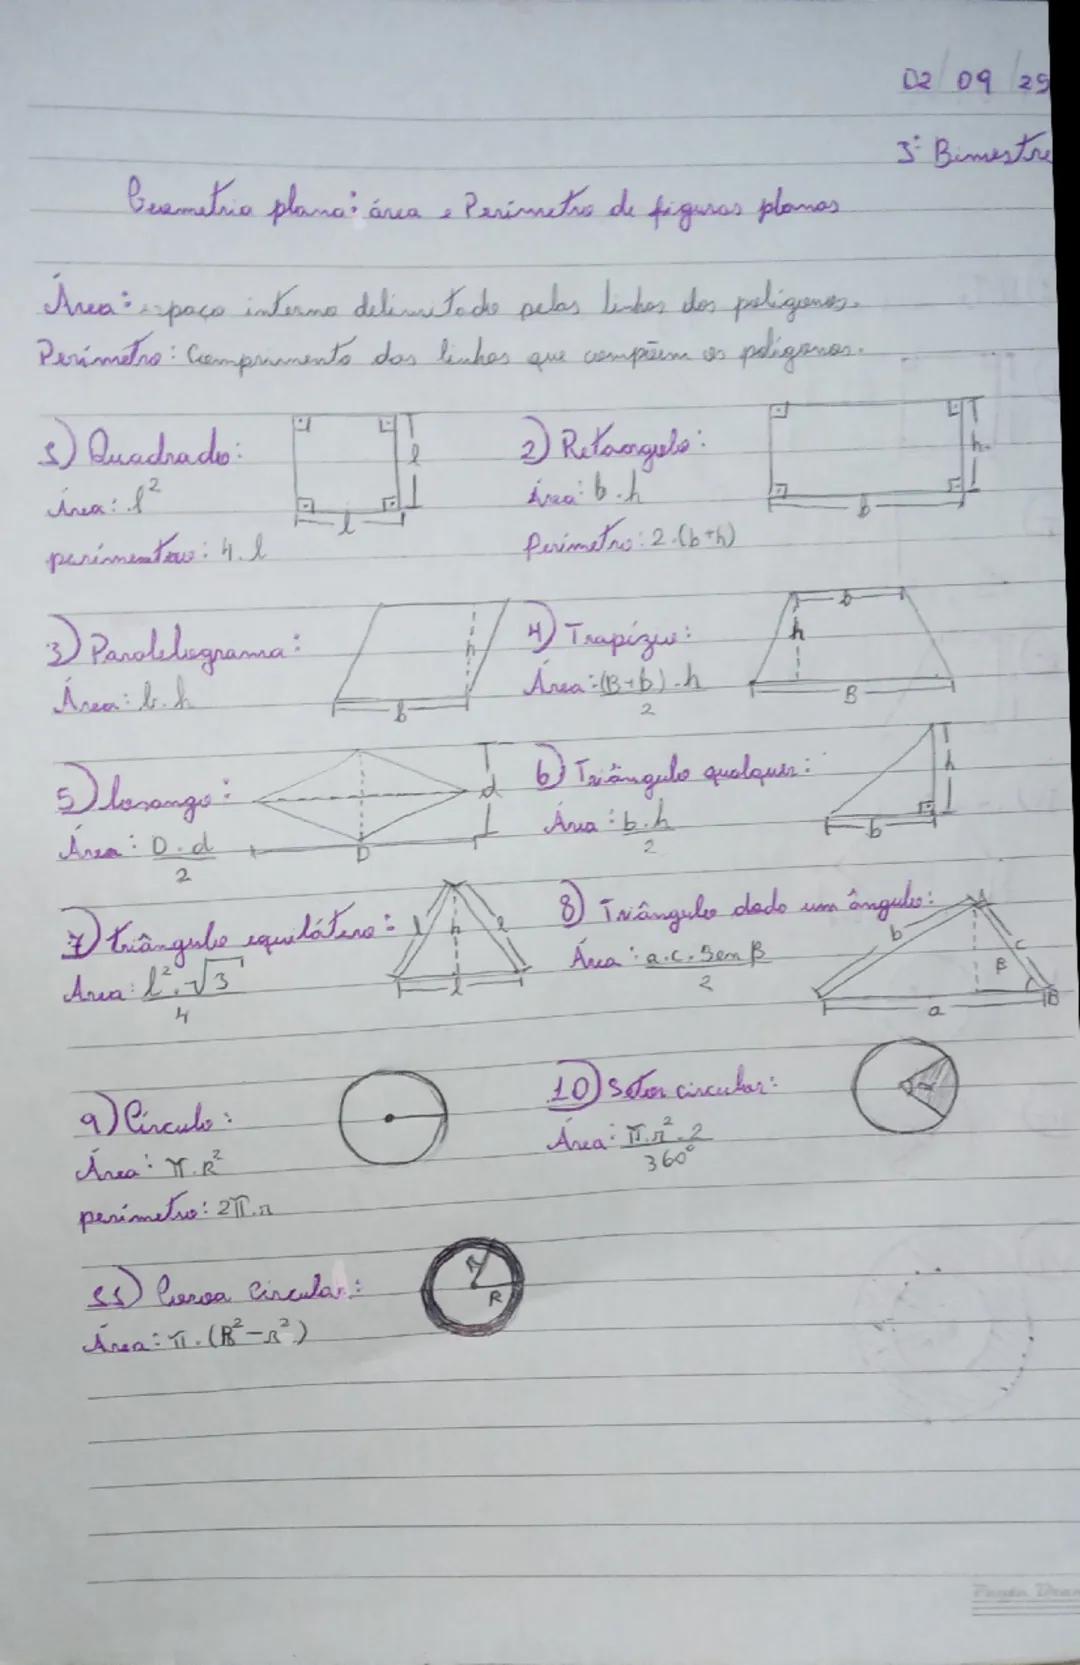 02/09/25
3º Bimestre
Geometria plana: área e Perímetro de figuras planas
Área: espaço interno delimitado pelas linhas dos polígonos.
Perímetro: Comprimento das linhas que compõem os polígonos.
1) Quadrado:
Área: l²
perímentro: 4.l
l
l
2) Retaangulo:
Área: b.h
Perímetro: 2.(b+h)
h
b
3) Paralelograma:
Área: b.h
h
b
4) Trapézio:
Área: (B+b).h
2
b
h
B
5) losango:
Área: D.d
2
d
D
6) Triângulo qualquer:
Área: b.h
2
h
b
7) triângulo equilátero:
Área: l².√3
4
l
h
l
l
8) Triângulo dado um ângulo:
Área: a.c.Sen β
2
b
c
β
a
B
9) Círculo:
Área: π.R²
perímetro: 2π.r
10) Setor circular:
Área: π.r².2
360°
α
11) Coroa Circular:
Área: π.(R²-r²)
r
R